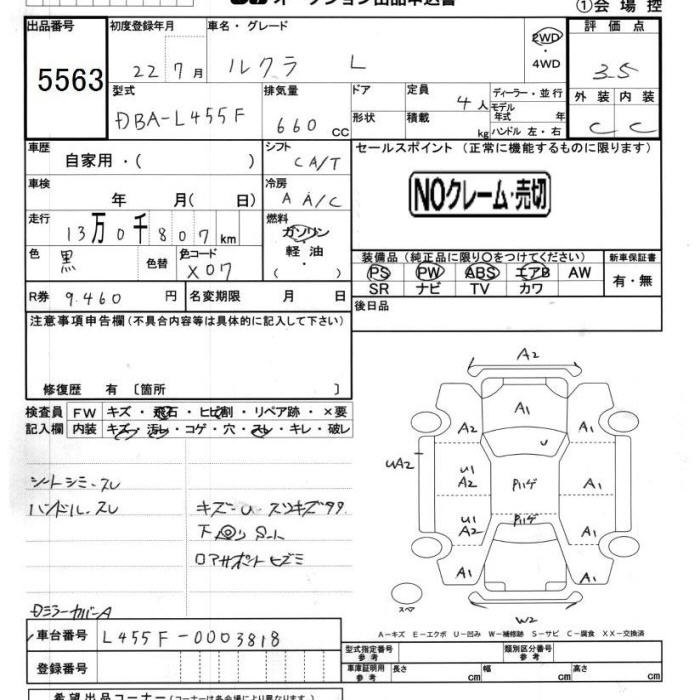 オークション出品申込書
①会場控
出品番号 初度登録年月 車名・グレード 評価点
5563 22 7月 ルクラ L 2WD・4WD 3.5
型式 排気量 ドア 定員 ディーラー・並行 外装 内装
DBA-L455F 660cc 形状 積載 4人 kg モデル年式 年式 ハンドル 左・右 C C
車歴 シフト セールスポイント(正常に機能するものに限ります)
自家用・( ) CA/T
NOクレーム・売切
車検 年 月( 日) 冷房 A A/C
走行 13万0千807km 燃料 ガソリン・軽油・( )
色 黒 色替 色コード X07
装備品(純正品に限り○をつけてください) 新車保証書
PS PW ABS エアB AW 有・無
SR ナビ TV カワ
R券 9.460円 名変期限 月 日 後日品
注意事項申告欄(不具合内容等は具体的に記入して下さい)
修復歴 有〔箇所 〕
検査員 FW キズ・飛石・ヒビ割・リペア跡・×要
記入欄 内装 キズ・汚レ・コゲ・穴・スレ・キレ・破レ
シートシミ・スレ
ハンドル・スレ
キズ・U・スリキズ
下回リ
ロアサポートヒズミ
Dミラーカバー A
A2
A1
A2 U A1
UA2
U1 A2 A1
U1 A2 A1
A1 A1
W2
スペア
A-キズ E-エクボ U-凹み W-補修跡 S-サビ C-腐食 XX-交換済
車台番号 L455F-0003818
登録番号
型式指定番号 参考 類別区分番号 参考
車庫証明用 参考 長さ cm 幅 cm 高さ cm
希望出品コーナー(コーナーは各会場により異なります。)